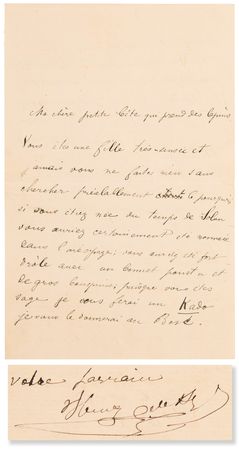 Ma chère petite bête qui prend des
Vous êtes une fille très sensée et
jamais vous ne faites rien sans
chercher préalablement le pourquoi
si vous étiez née du temps de
vous auriez certainement été
dans vous auriez été fort
drôle avec un bonnet pointu et
de gros puisque vous êtes
sage je vous ferai un Kado
je vous le donnerai au Bosc.
votre parrain
Henry